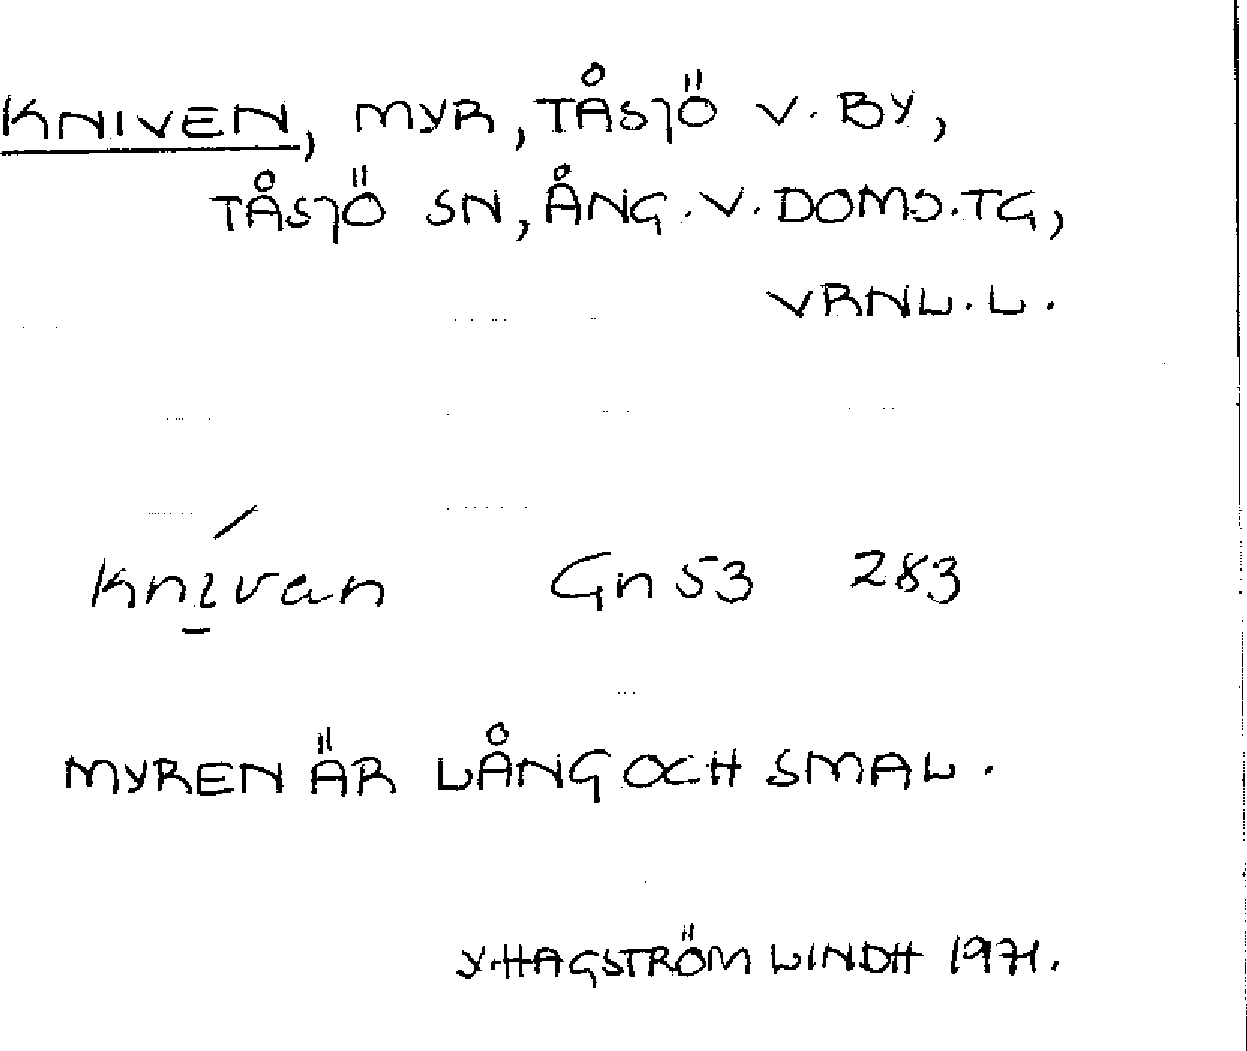 KNIVEN, MYR, TÅSJÖ V. BY,
TÅSJÖ SN, ÅNG. V. DOMS.TG,
VRNL. L.
kní̱van Gn 53 283
MYREN ÄR LÅNG OCH SMAL.
Y. HAGSTRÖM LINDH 1971.